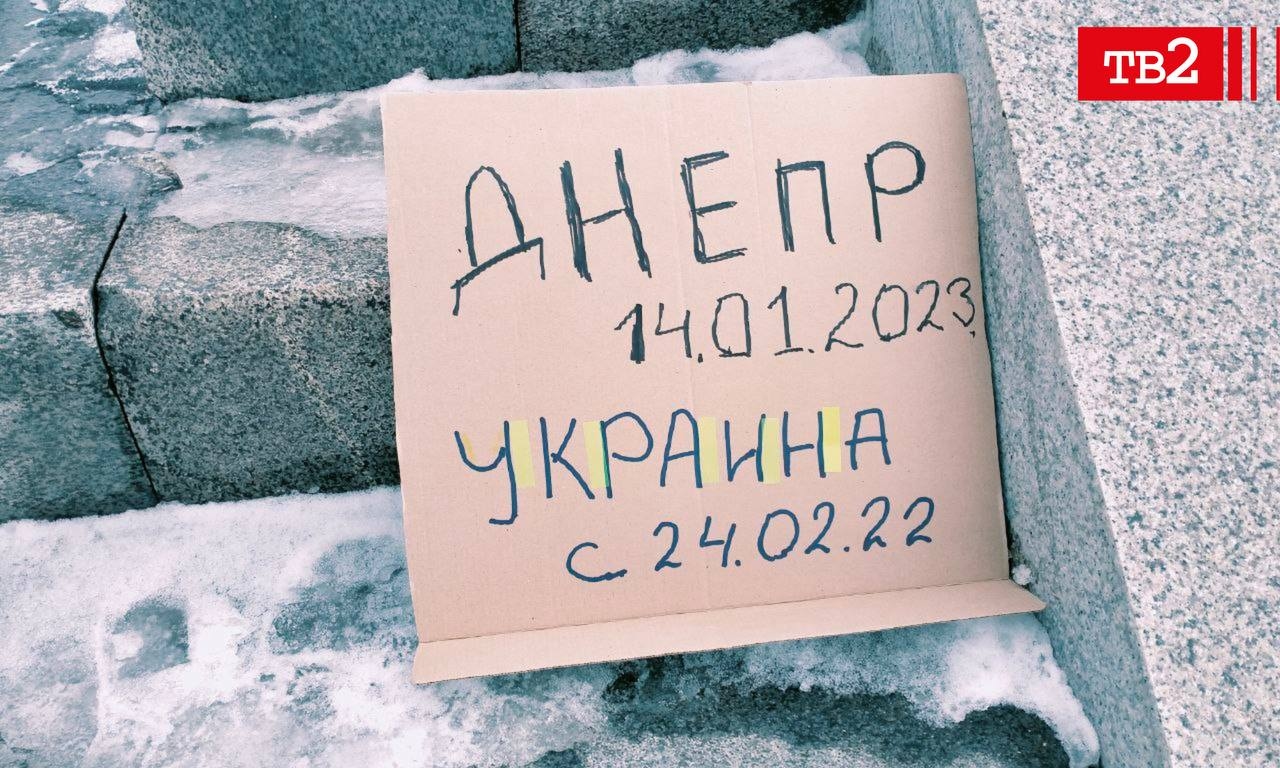 ТВ2
ДНЕПР
14.01.2023
УКРАИНА
С 24.02.22